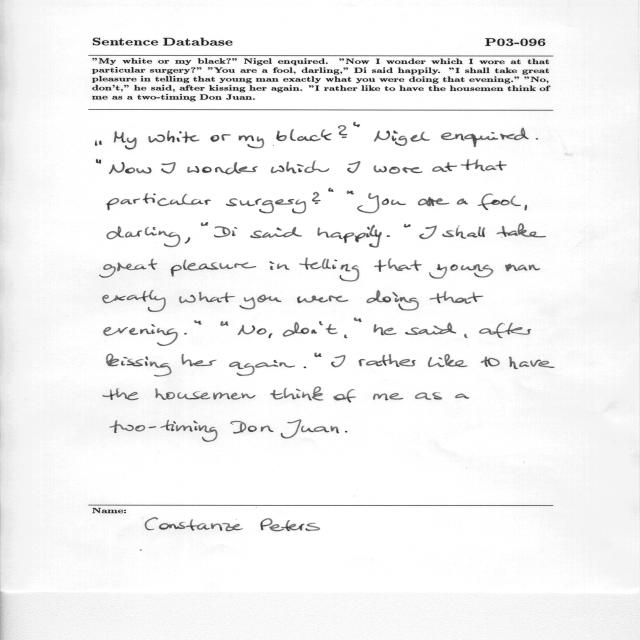 Sentence Database P03-096
"My white or my black?" Nigel enquired. "Now I wonder which I wore at that
particular surgery?" "You are a fool, darling," Di said happily. "I shall take great
pleasure in telling that young man exactly what you were doing that evening." "No,
don't," he said, after kissing her again. "I rather like to have the housemen think of
me as a two-timing Don Juan.
„My white or my black?" Nigel enquired.
"Now I wonder which I wore at that
particular surgery?" "You are a fool,
darling, "Di said happily. "I shall take
great pleasure in telling that young man
exatly what you were doing that
evening." "No, don't," he said, after
kissing her again. "I rather like to have
the housemen think of me as a
two-timing Don Juan.
Name:
Constanze Peters